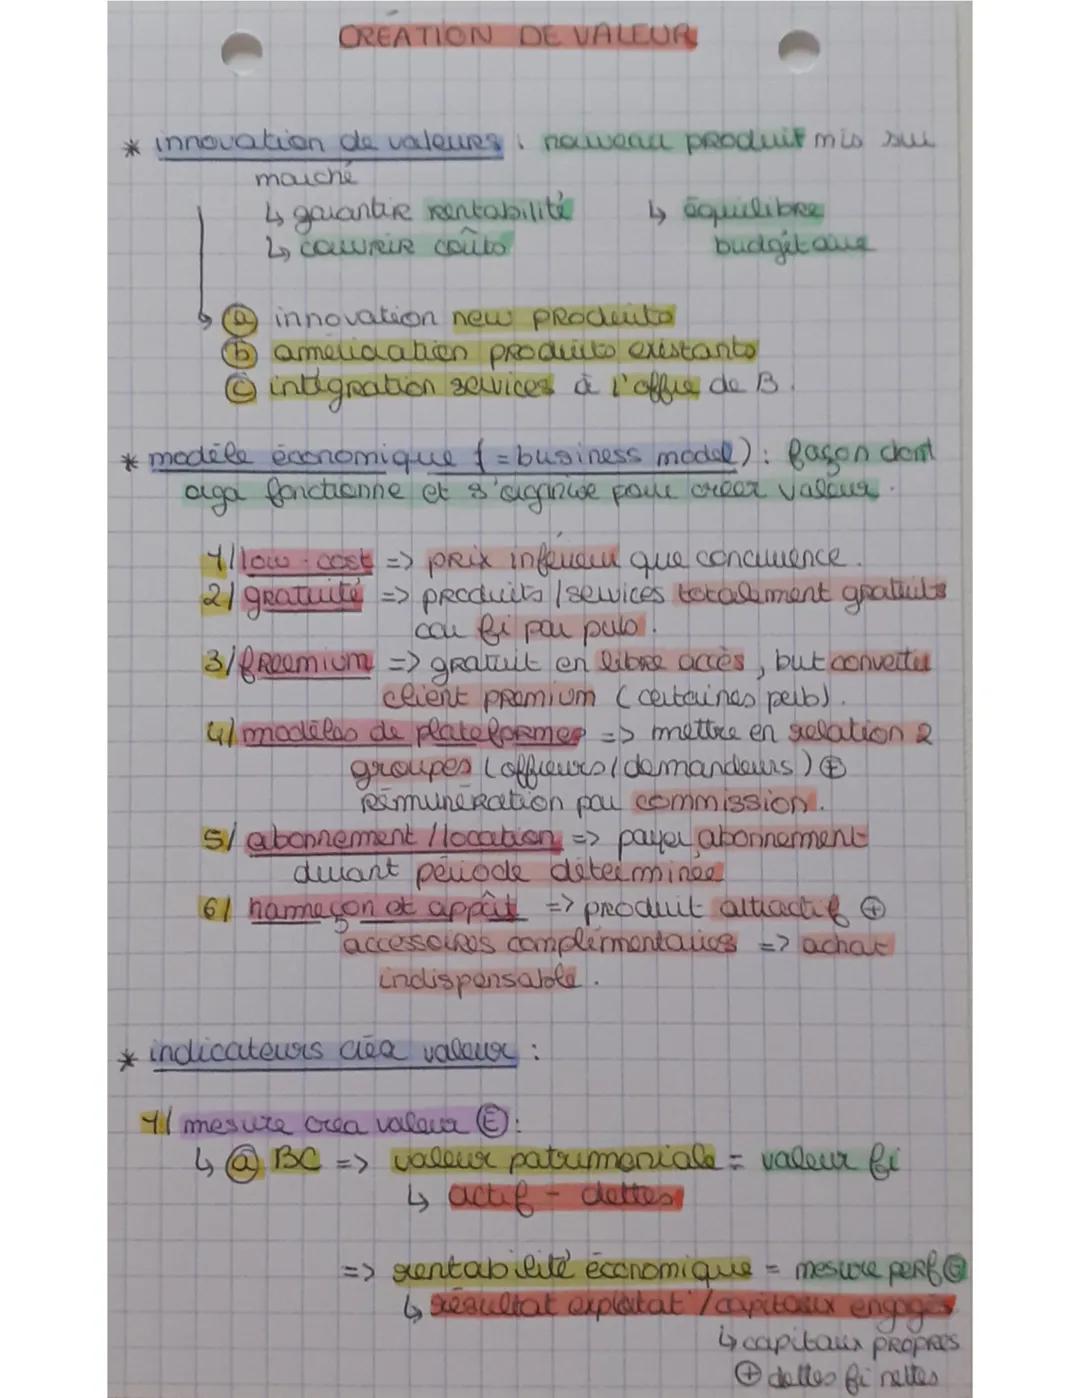 CRÉATION DE VALEUR
* innovation de valeurs : nouveau produit mis sur
marché
↳ garantir rentabilité ↳ équilibre
↳ couvrir coûts budgétaire
↳ ⓐ innovation new produits
ⓑ amélioration produits existants
ⓒ intégration services à l'offre de B.
* modèle économique (= business model) : façon dont
orga fonctionne et s'organise pour créer valeur.
1/ low-cost => prix inférieur que concurrence.
2/ gratuité => produits / services totalement gratuits
car fi par pub.
3/ freemium => gratuit en libre accès, but convertir
client premium (certaines pers).
4/ modèles de plateformes => mettre en relation 2
groupes (offreurs / demandeurs) ⊕
rémunération par commission.
5/ abonnement / location => payer abonnement
durant période déterminée
6/ hameçon et appât => produit attractif ⊕
accessoires complémentaires => achat
indispensable.
* indicateurs créa valeur :
1/ mesure créa valeur Ⓔ :
↳ ⓐ BC => valeur patrimoniale = valeur fi
↳ actif - dettes
=> rentabilité économique = mesure perf Ⓔ
↳ résultat exploitat° / capitaux engagés
↳ capitaux propres
⊕ dettes fi nettes